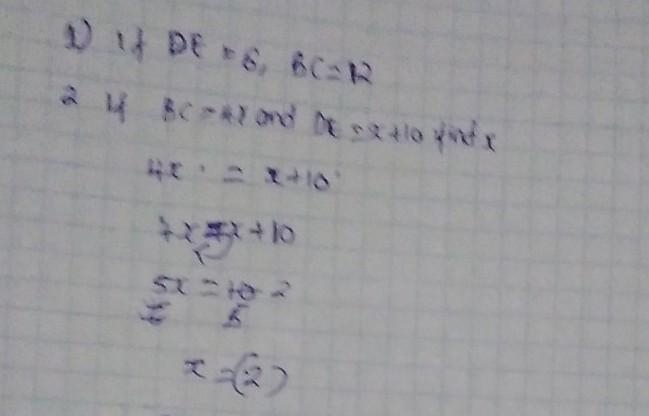 1) If DE = 6, BC = 12
2 If BC = 4x and DE = x + 10 find x
4x = x + 10
7x x + 10
5x = 10 2
5 5
x = (2)